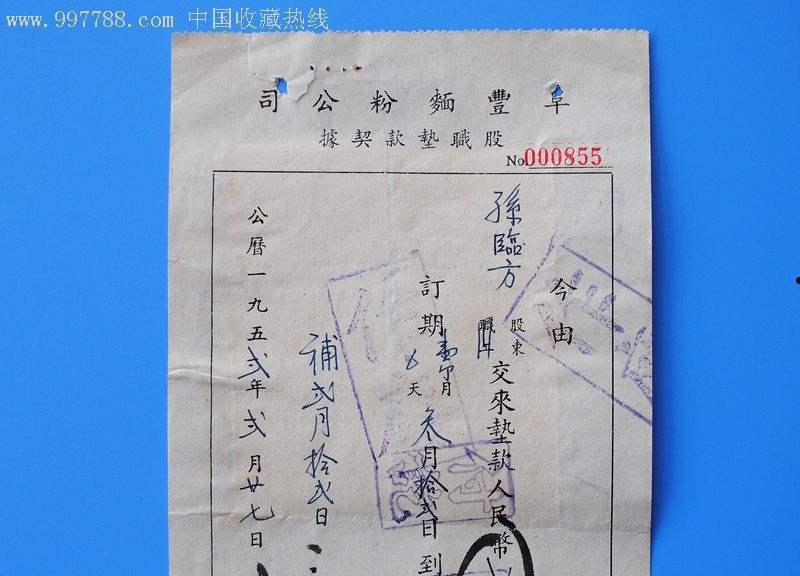 www.997788.com 中国收藏热线
阜豐麵粉公司
股職墊款契據
No 000855
今由
孫臨方
股東
職
交來墊款人民幣
訂期
月
天
叁月拾弍日到
補弍月拾弍日
公曆一九五弍年弍月廿七日